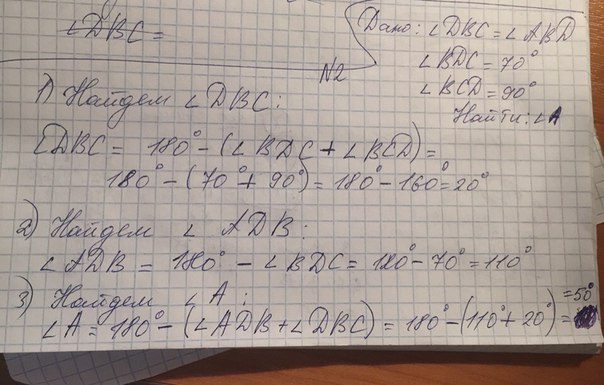 ∠DBC =
Дано: ∠DBC = ∠ABD
∠BDC = 70°
∠BCD = 90°
Найти: ∠A
N2
1) Найдем ∠DBC:
∠DBC = 180° - (∠BDC + ∠BCD) =
180° - (70° + 90°) = 180° - 160° = 20°
2) Найдем ∠ADB:
∠ADB = 180° - ∠BDC = 180° - 70° = 110°
3) Найдем ∠A:
∠A = 180° - (∠ADB + ∠DBC) = 180° - (110° + 20°) =
= 50°